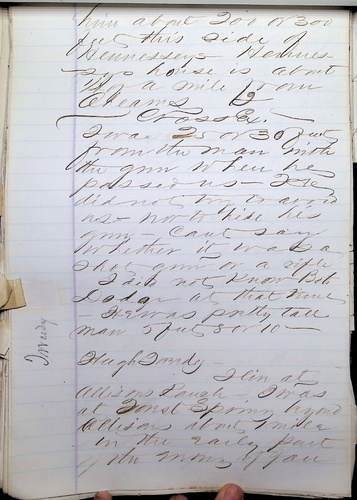 him about 200 or 300
feet this side of
Hennesseys Hennes-
seys house is about
of a mile from
Cleams
Cross Ex.
I was 25 or 30 feet
from the man with
the gun when he
passed us - He
did not try to avoid
us - nor to hide his
gun - Cant say
whether it was a
shot gun or a rifle
I did not know Bob
Dodge at that time
- He was pretty tall
man 5 feet 8 or 10 -
Tweedy
Hugh Tweedy -
I live at
Allisons Ranch - I was
at Spring beyond
Allisons about 1 mile
in the early part
of the morng of